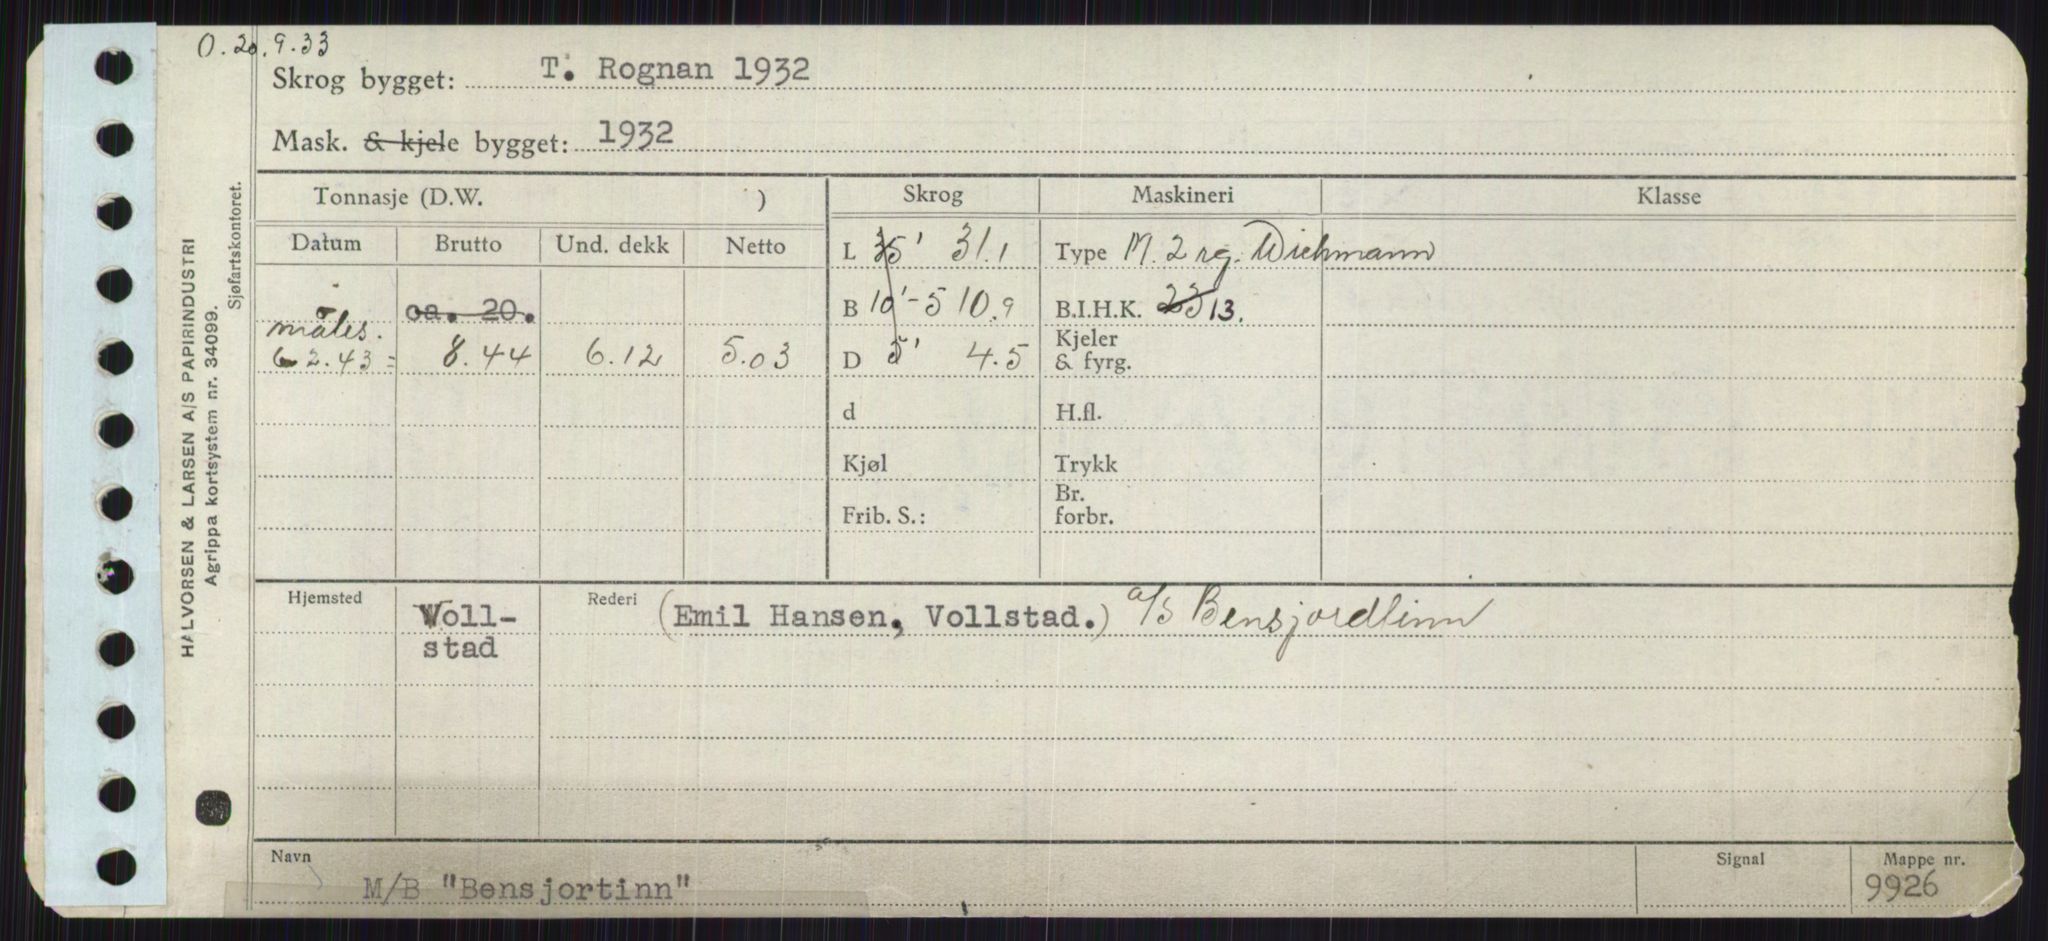 O. 20.9.33
Skrog bygget: T. Rognan 1932
Mask. & kjele bygget: 1932
Tonnasje (D.W. ) Skrog Maskineri Klasse
Datum Brutto Und. dekk Netto
L 35' 31.1 Type M. 2 sg. Wichmann
ca. 20. B 10'-5 10.9 B.I.H.K. 23 13.
måles.
6 2.43 = 8.44 6.12 5.03 D 5' 4.5 Kjeler & fyrg.
d H.fl.
Kjøl Trykk
Frib. S.: Br. forbr.
Hjemsted Voll- Rederi (Emil Hansen, Vollstad.) a/s Bensjordtinn
stad
Navn Signal Mappe nr.
M/B "Bensjortinn" 9926
HALVORSEN & LARSEN A/S PAPIRINDUSTRI
Agrippa kortsystem nr. 34099.
Sjøfartskontoret.